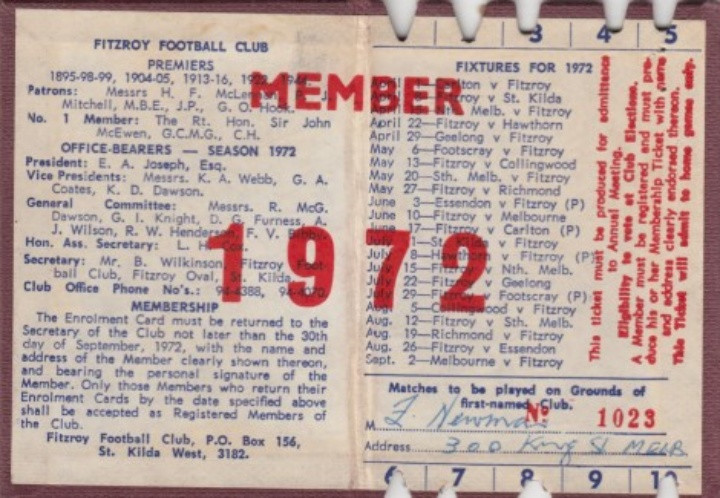 FITZROY FOOTBALL CLUB
PREMIERS
1895-98-99, 1904-05, 1913-16, 1922, 1944.
Patrons: Messrs H. F. McLennan, J.
Mitchell, M.B.E., J.P., G. O. Hook.
No. 1 Member: The Rt. Hon. Sir John
McEwen, G.C.M.G., C.H.
OFFICE-BEARERS — SEASON 1972
President: E. A. Joseph, Esq.
Vice Presidents: Messrs. K. A. Webb, G. A.
Coates, K. D. Dawson.
General Committee: Messrs. R. McG.
Dawson, G. I. Knight, D. G. Furness, A.
J. Wilson, R. W. Henderson, F. V.
Hon. Ass. Secretary: L. H. Cox.
Secretary: Mr. B. Wilkinson, Fitzroy Foot-
ball Club, Fitzroy Oval, St. Kilda.
Club Office Phone No's.: 94-4388, 94-4070.
MEMBERSHIP
The Enrolment Card must be returned to the
Secretary of the Club not later than the 30th
day of September, 1972, with the name and
address of the Member clearly shown thereon,
and bearing the personal signature of the
Member. Only those Members who return their
Enrolment Cards by the date specified above
shall be accepted as Registered Members of
the Club.
Fitzroy Football Club, P.O. Box 156,
St. Kilda West, 3182.
MEMBER
1972
2 3 4 5
FIXTURES FOR 1972
v Fitzroy
Fitzroy v St. Kilda
Melb. v Fitzroy
April 22—Fitzroy v Hawthorn
April 29—Geelong v Fitzroy
May 6—Footscray v Fitzroy
May 13—Fitzroy v Collingwood
May 20—Sth. Melb. v Fitzroy
May 27—Fitzroy v Richmond
June 3—Essendon v Fitzroy (P)
June 10—Fitzroy v Melbourne
June 17—Fitzroy v Carlton (P)
July 1—St. Kilda v Fitzroy
July 8—Hawthorn v Fitzroy (P)
July 15—Fitzroy v Nth. Melb.
July 22—Fitzroy v Geelong
July 29—Fitzroy v Footscray (P)
Aug. 5—Collingwood v Fitzroy
Aug. 12—Fitzroy v Sth. Melb.
Aug. 19—Richmond v Fitzroy
Aug. 26—Fitzroy v Essendon
Sept. 2—Melbourne v Fitzroy
Matches to be played on Grounds of
first-named Club.
No 1023
M F. Newman
Address 300 King St MELB
6 7 8 9 10
This ticket must be produced for admittance
to Annual Meeting.
Eligibility to vote at Club Elections.
A Member must be registered and must pro-
duce his or her Membership Ticket with name
and address clearly endorsed thereon.
This Ticket will admit to home games only.